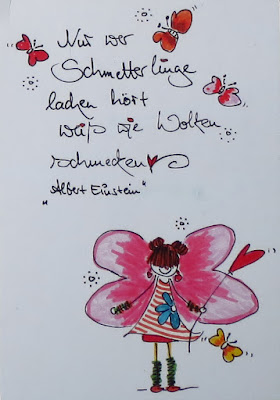 Nur wer
Schmetterlinge
lachen hört
weiß wie Wolken
schmecken
"Albert Einstein"